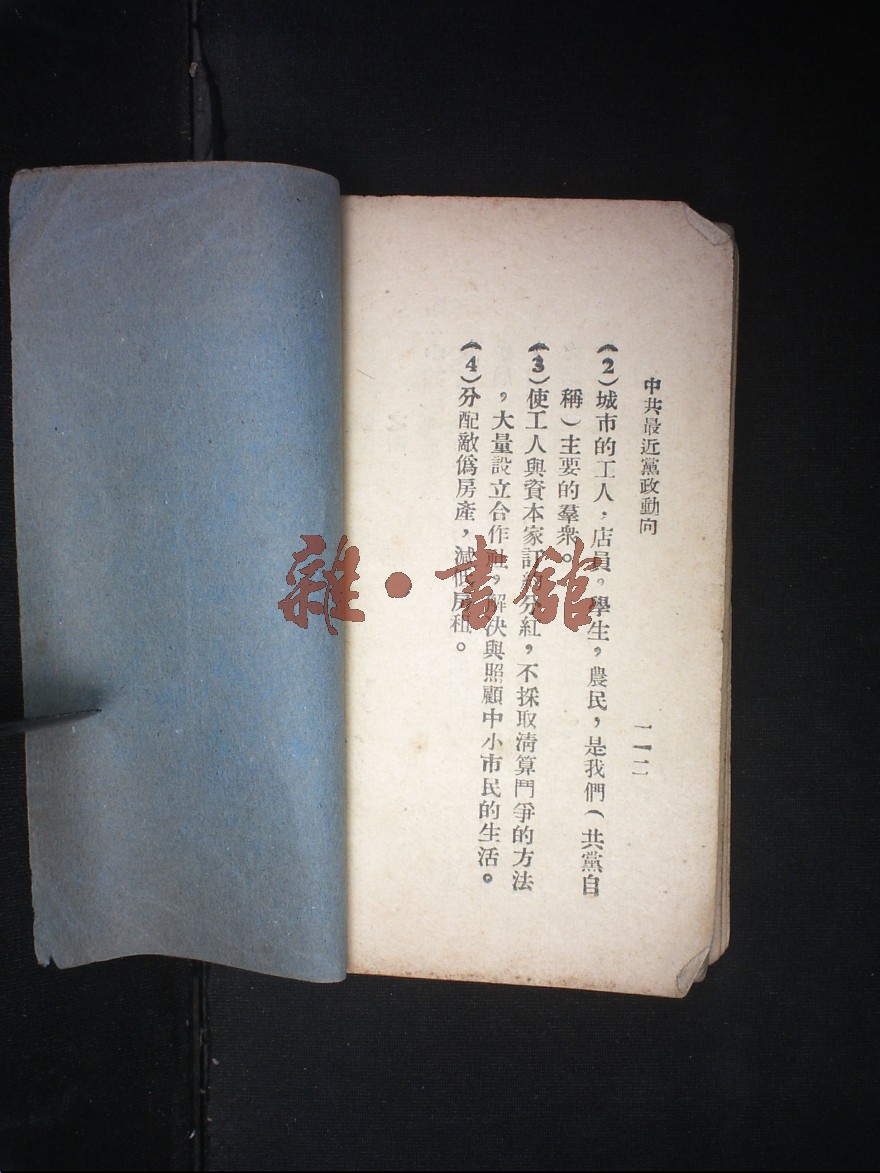 中共最近黨政動向
一一二
（2）城市的工人，店員。學生，農民，是我們（共黨自
稱）主要的羣衆。
（3）使工人與資本家訂約分紅，不採取清算鬥爭的方法
，大量設立合作社，解決與照顧中小市民的生活。
（4）分配敵僞房產，減低房租。
雜·書館